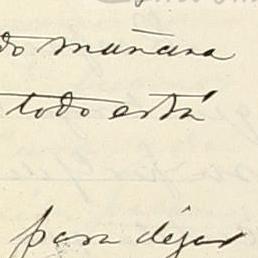 do mañana
todo está
para dejar